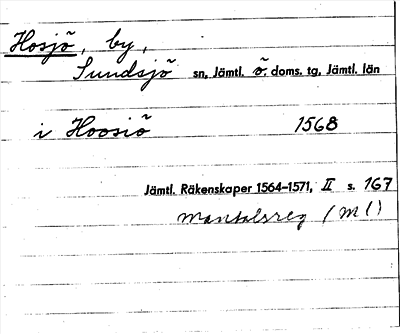 Hosjö, by,
Sundsjö sn, Jämtl. ö. doms. tg, Jämtl. län
i Hoosiö 1568
Jämtl. Räkenskaper 1564–1571, II s. 167
Mantalsreg (Ml)